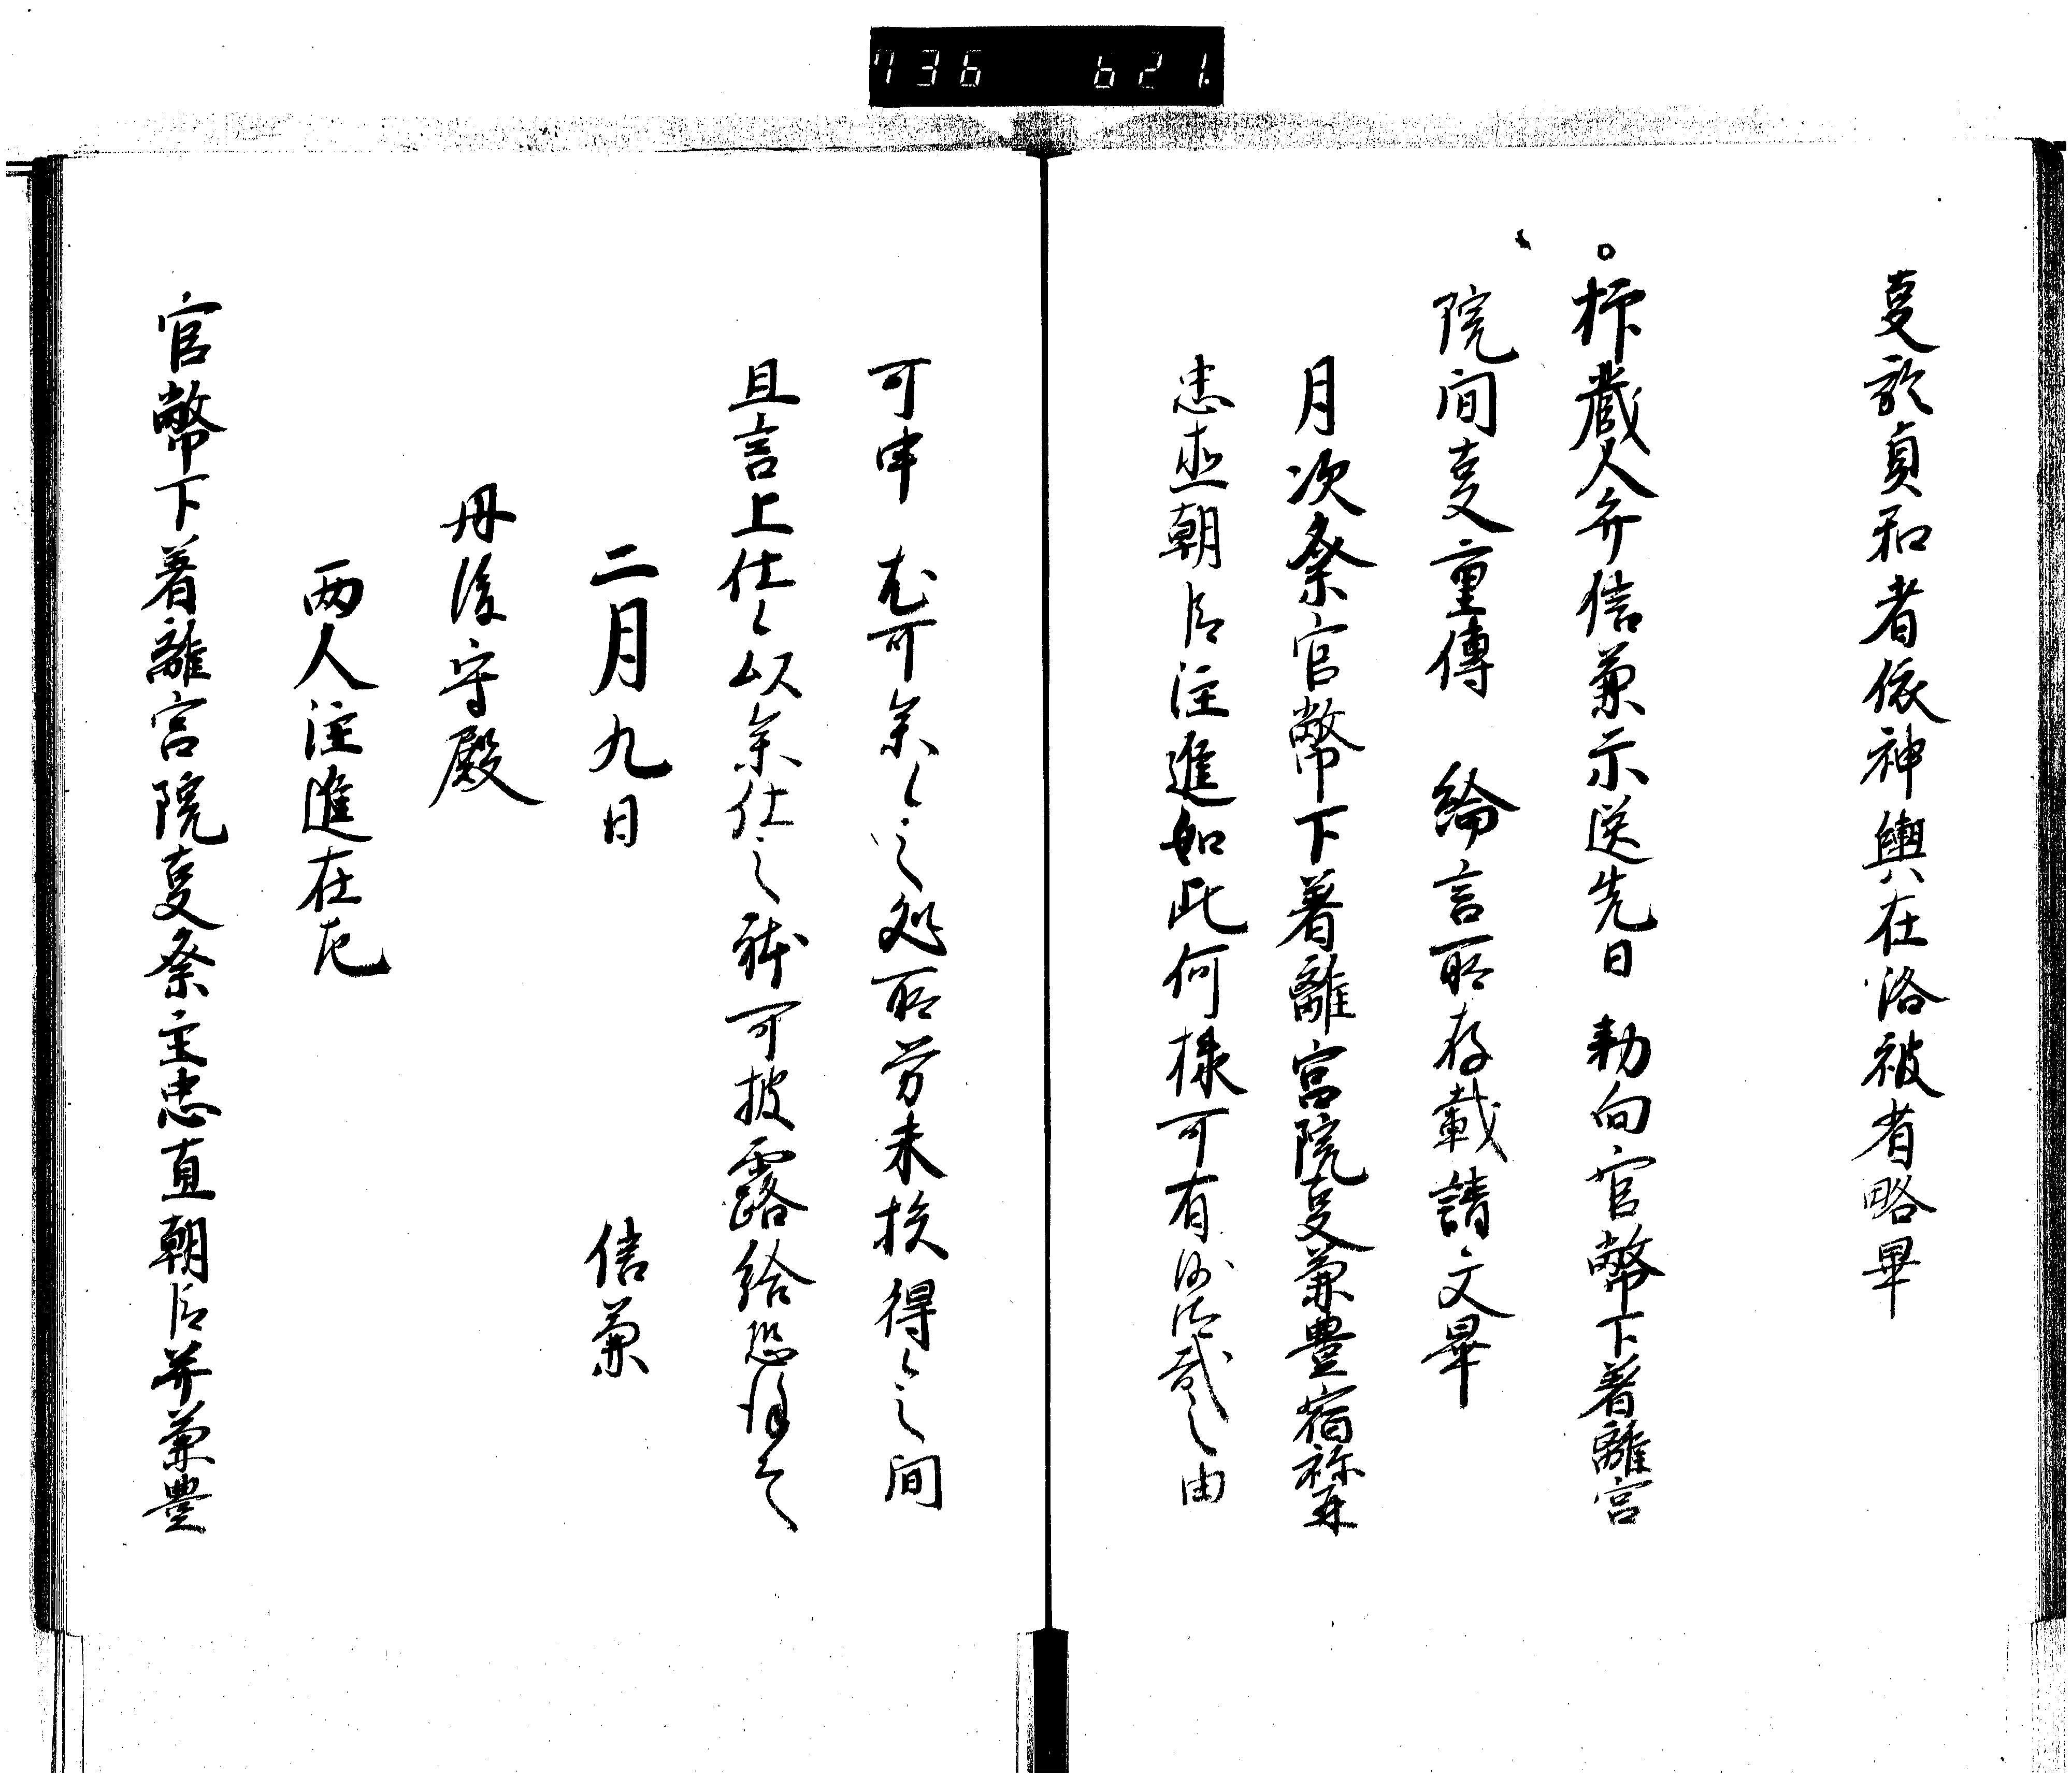 736 621
叓於貞和者依神輿在洛被省略畢
抑蔵人弁信兼示送先日 勅向官幣下著離宮
院間叓重傳 綸言所存載請文畢
月次祭官幣下著離宮院叓兼豊宿祢并
忠直朝臣注進如此何様可有御沙汰哉之由
可申 尤可参之処所労未扶得之間
且言上仕候以参仕之躰可披露給恐惶々々
二月九日 信兼
丹後守殿
両人注進在左
官幣下著離宮院叓祭主忠直朝臣并兼豊